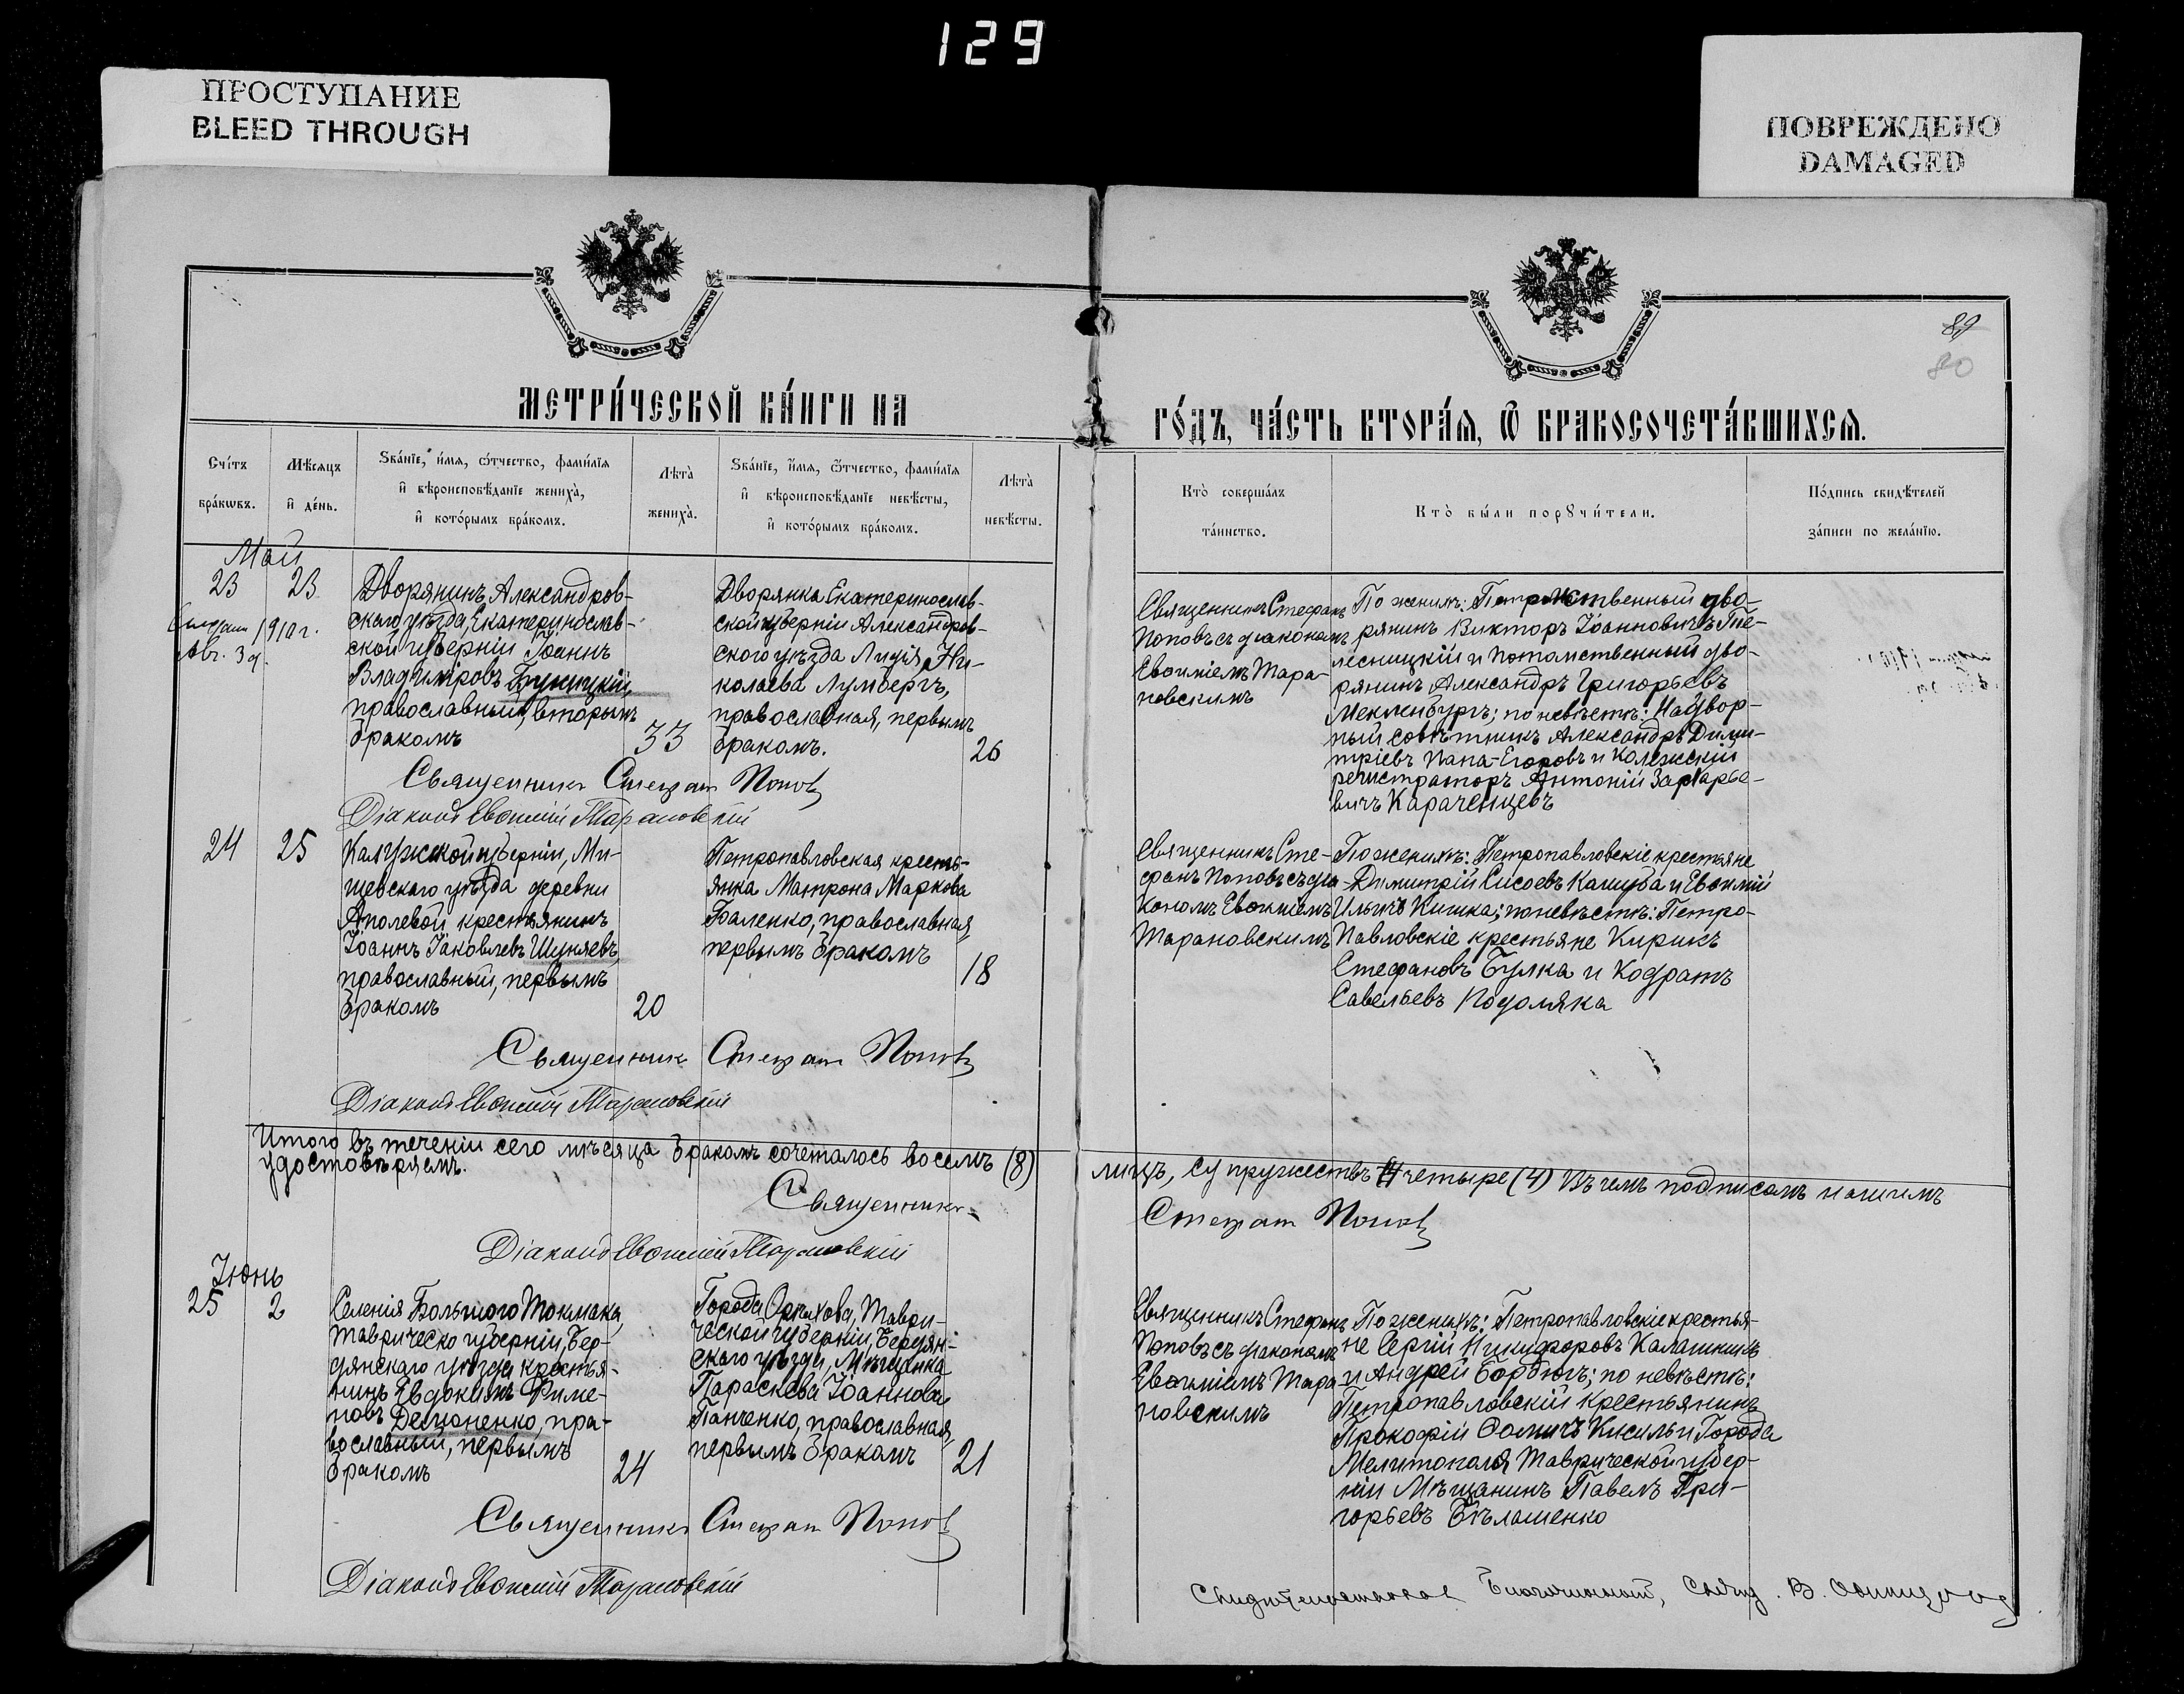 129
ПРОСТУПАНИЕ
BLEED THROUGH
ПОВРЕЖДЕНО
DAMAGED
80
МЕТРИ́ЧЕСКОЙ КНИ́ГИ НА
ГО́ДЪ, ЧА́СТЬ ВТОРА́Ѧ, Ѽ БРАКОСОЧЕТА́ВШИХСѦ.
Счѐтъ
бра́кωвъ.
Мѣ́сѧцъ
и҆ де́нь.
Ѕва́нїе, и҆́мѧ, ѻ҆́тчество, фами́лїѧ
и҆ вѣроисповѣ́данїе жениха̀,
и҆ кото́рымъ бра́комъ.
Лѣта̀
жениха̀.
Ѕва́нїе, и҆́мѧ, ѻ҆́тчество, фами́лїѧ
и҆ вѣроисповѣ́данїе невѣ́сты,
и҆ кото́рымъ бра́комъ.
Лѣта̀
невѣ́сты.
Кто̀ соверша́лъ
та́инство.
Кто̀ бы́ли порꙋчи́тели.
По́дпись свидѣ́телей
за́писи по жела́нїю.
Май
23
23
1910 г.
Авг. 3 д.
Дворянинъ, Александров-
скаго уѣзда, Екатеринослав-
ской губерніи Іоаннъ
Владиміровъ
православный, вторымъ
бракомъ
33
Дворянка Екатеринослав-
ской губерніи Александров-
скаго уѣзда Лидія Ни-
колаева Лумбергъ,
православная, первымъ
бракомъ.
26
Священникъ Стефанъ
Поповъ съ діакономъ
Евѳиміемъ Тара-
новскимъ
По женихѣ: Потомственный дво-
рянинъ Викторъ Іоанновичъ Пле-
лесницкій и потомственный дво-
рянинъ Александръ Григорьевъ
Мекленбургъ; по невѣстѣ: Надвор-
ный совѣтникъ Александръ Дими-
тріевъ Папа-Егоровъ и Коллежскій
регистраторъ Антоній Захарье-
вичъ Караченцевъ
Священникъ Стефанъ Поповъ
Діаконъ Евѳимій Тарановскій
24
25
Калужской губерніи, Ми-
щевскаго уѣзда деревни
Аполевой крестьянинъ
Іоаннъ Іаковлевъ Шуняевъ,
православный, первымъ
бракомъ
20
Петропавловская кресть-
янка Матрона Маркова
Баленко, православная,
первымъ бракомъ
18
Священникъ Сте-
фанъ Поповъ съ діа-
кономъ Евѳиміемъ
Тарановскимъ
По женихѣ: Петропавловскіе крестьяне
Димитрій Сисоевъ Кашуба и Евѳимій
Ильичъ Кишка; по невѣстѣ: Петро-
Павловскіе крестьяне Кирикъ
Стефановъ Булка и Кодратъ
Савельевъ Подоляка
Священникъ Стефанъ Поповъ
Діаконъ Евѳимій Тарановскій
Итого въ теченіи сего мѣсяца бракомъ сочеталось восемь (8)
лицъ, супружествъ четыре (4) Въ чемъ подписомъ нашимъ
удостовѣряемъ.
Священникъ
Стефанъ Поповъ
Діаконъ Евѳимій Тарановскій
Іюнь
25
2
Селенія Большого Токмака,
Таврическо губерніи, Бер-
дянскаго уѣзда крестья-
нинъ Евдокимъ Филе-
новъ Демоненко, пра-
вославный, первымъ
бракомъ
24
Города Орѣхова, Таври-
ческой губерніи, Бердян-
скаго уѣзда, Мѣщанка
Параскева Іоаннова
Панченко, православная,
первымъ бракомъ
21
Священникъ Стефанъ
Поповъ съ діакономъ
Евѳиміемъ Тара-
новскимъ
По женихѣ: Петропавловскіе крестья-
не Сергій Никифоровъ Калашникъ
и Андрей Бордюгъ; по невѣстѣ:
Петропавловскій крестьянинъ
Прокофій Ѳомичъ Кисиль и Города
Мелитополя Таврической губер-
ніи Мѣщанинъ Павелъ Гри-
горьевъ Бѣлашенко
Священникъ Стефанъ Поповъ
Діаконъ Евѳимій Тарановскій
Благочинный, Свящ. В.